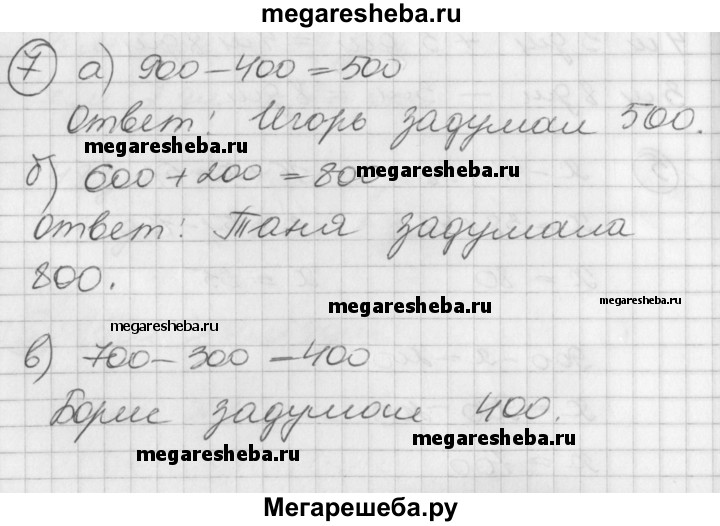 megaresheba.ru
7 а) 900 - 400 = 500
Ответ: Игорь задумал 500.
megaresheba.ru
б) 600 + 200 = 800
megaresheba.ru
Ответ: Таня задумала
800.
megaresheba.ru
megaresheba.ru
megaresheba.ru
в) 700 - 300 - 400
Борис задумал 400.
megaresheba.ru
megaresheba.ru
Мегарешеба.ру